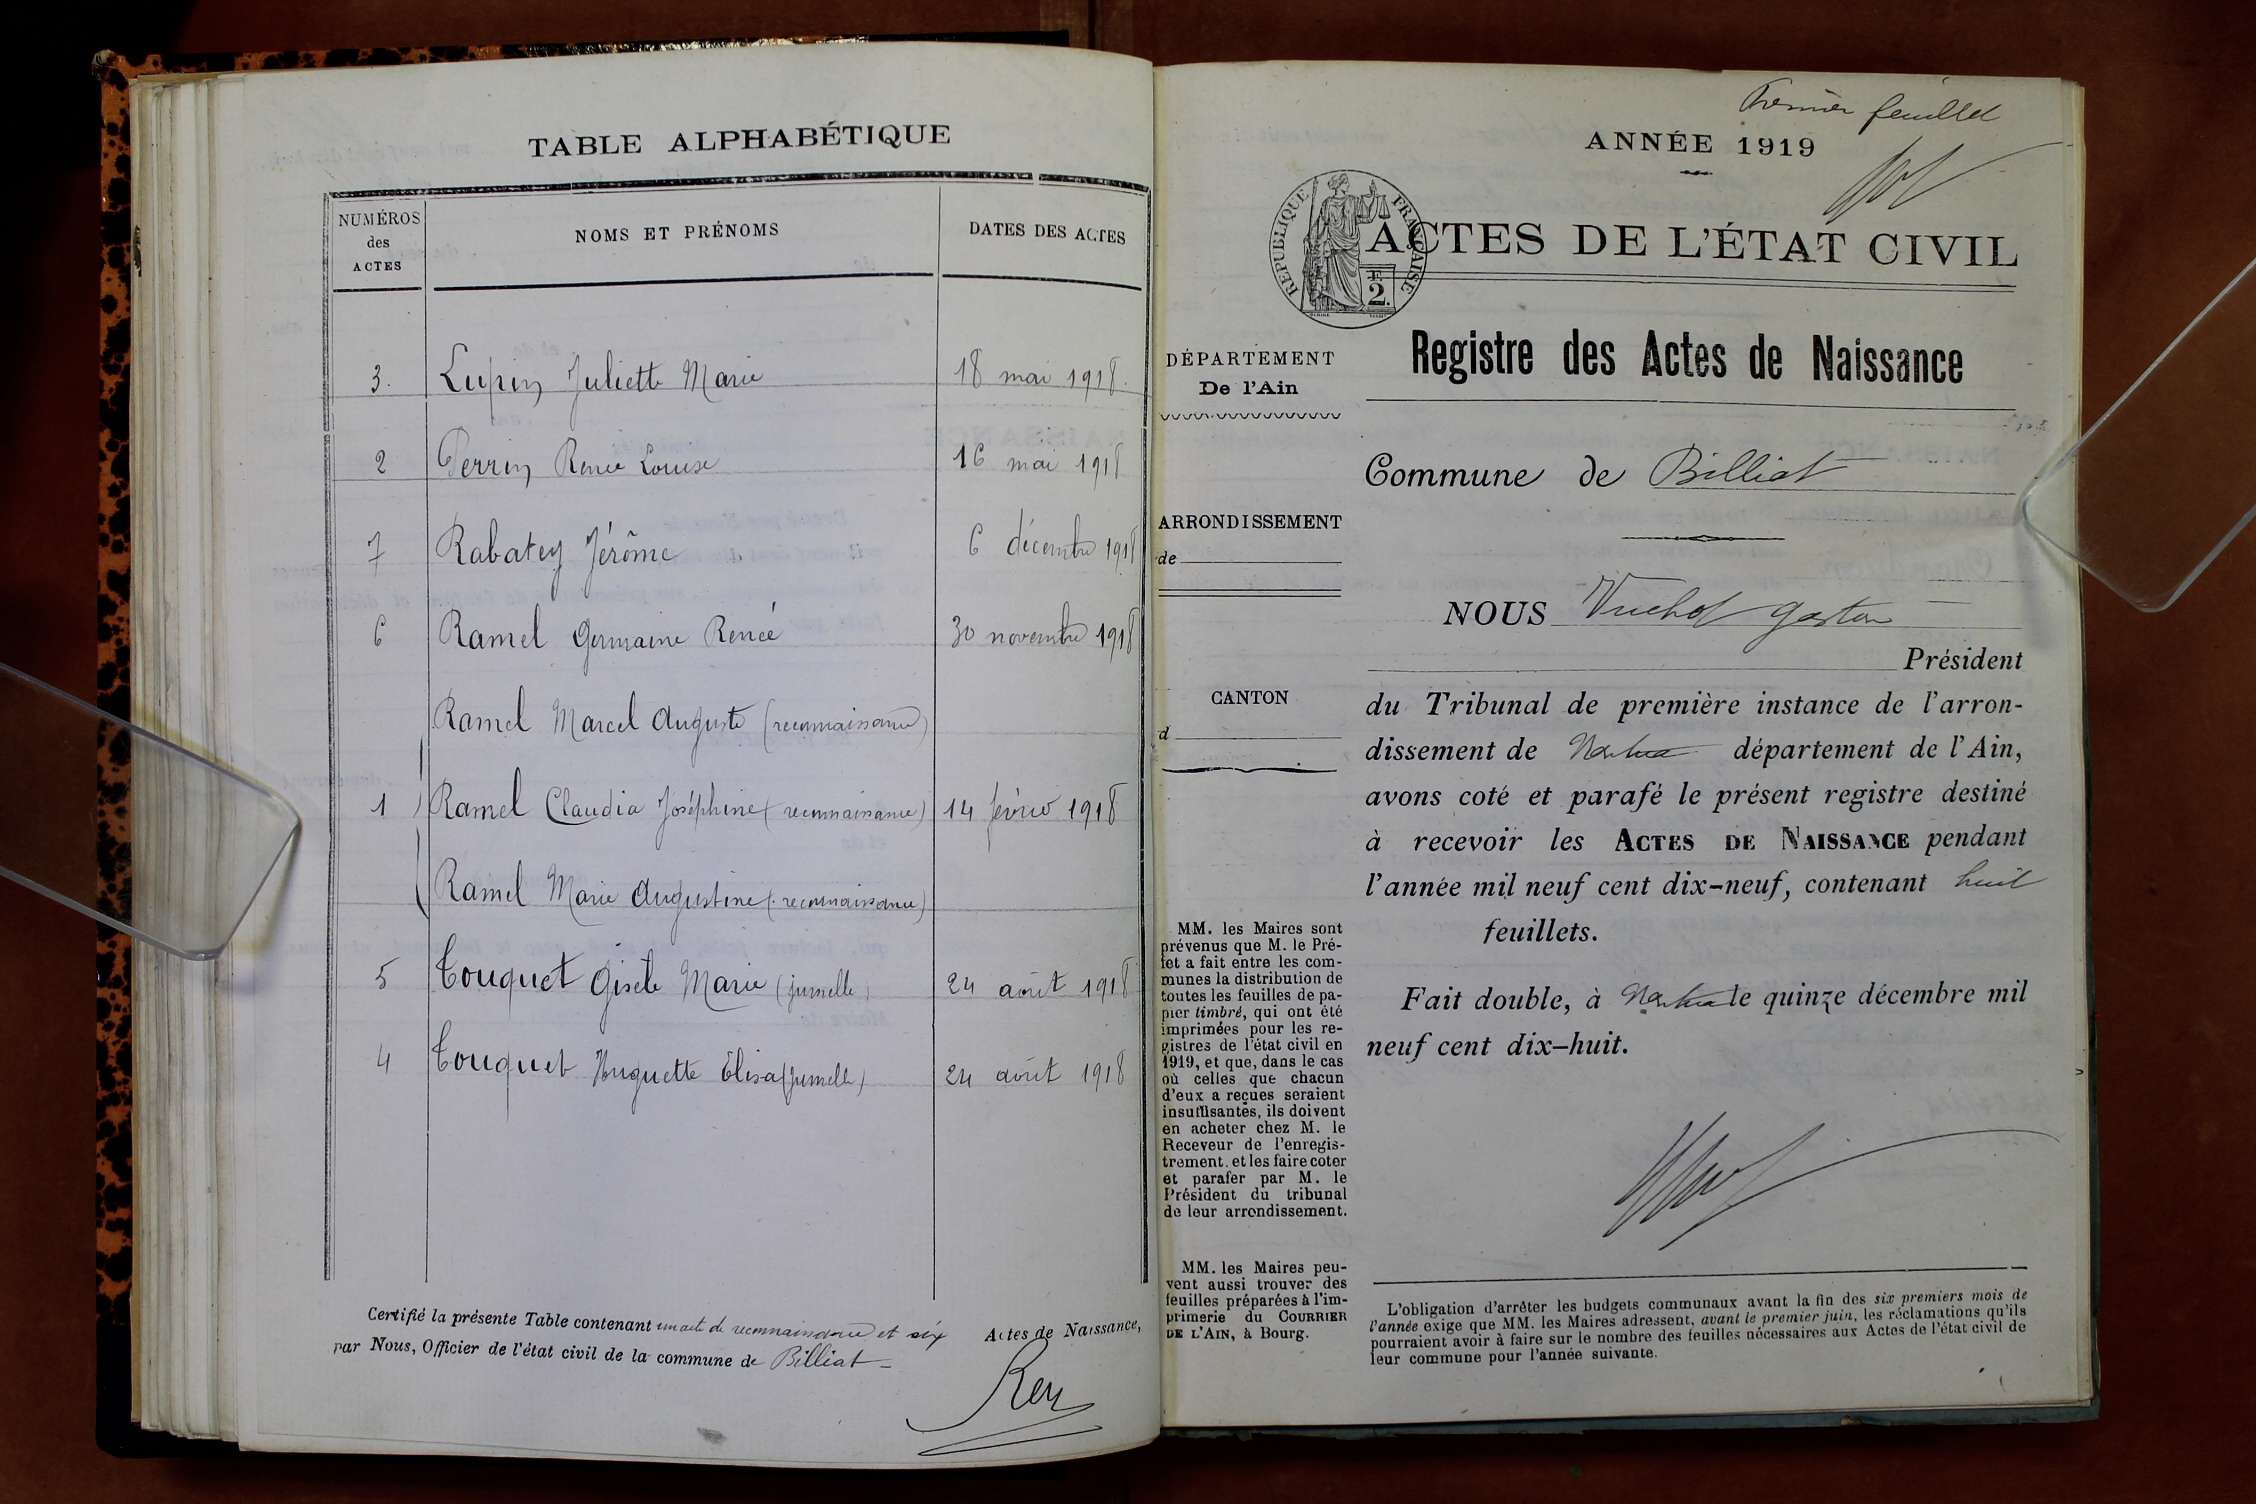 TABLE ALPHABÉTIQUE
NUMÉROS
des
ACTES
NOMS ET PRÉNOMS
DATES DES ACTES
3. Lupin Juliette Marie 18 mai 1918.
2 Perrin Renée Louise 16 mai 1918
7 Rabatey Jérôme 6 décembre 1918
6 Ramel Germaine Renée 30 novembre 1918
Ramel Marcel Auguste (reconnaissance)
1 Ramel Claudia Joséphine (reconnaissance) 14 février 1918
Ramel Marie Augustine (reconnaissance)
5 Touquet Gisèle Marie (jumelle) 24 août 1918
4 Touquet Huguette Elisa (jumelle) 24 août 1918
Certifié la présente Table contenant un acte de reconnaissance et six Actes de Naissance,
par Nous, Officier de l'état civil de la commune de Billiat
Rey
Premier feuillet
ANNÉE 1919
RÉPUBLIQUE FRANÇAISE
2
ACTES DE L'ÉTAT CIVIL
Registre des Actes de Naissance
DÉPARTEMENT
De l'Ain
ARRONDISSEMENT
de
CANTON
d
MM. les Maires sont
prévenus que M. le Pré-
fet a fait entre les com-
munes la distribution de
toutes les feuilles de pa-
pier timbré, qui ont été
imprimées pour les re-
gistres de l'état civil en
1919, et que, dans le cas
où celles que chacun
d'eux a reçues seraient
insuffisantes, ils doivent
en acheter chez M. le
Receveur de l'enregis-
trement, et les faire coter
et parafer par M. le
Président du tribunal
de leur arrondissement.
MM. les Maires peu-
vent aussi trouver des
feuilles préparées à l'im-
primerie du COURRIER
DE L'AIN, à Bourg.
Commune de Billiat
NOUS Vuchot Gaston
Président
du Tribunal de première instance de l'arron-
dissement de Nantua département de l'Ain,
avons coté et parafé le présent registre destiné
à recevoir les ACTES DE NAISSANCE pendant
l'année mil neuf cent dix-neuf, contenant huit
feuillets.
Fait double, à Nantua le quinze décembre mil
neuf cent dix-huit.
L'obligation d'arrêter les budgets communaux avant la fin des six premiers mois de
l'année exige que MM. les Maires adressent, avant le premier juin, les réclamations qu'ils
pourraient avoir à faire sur le nombre des feuilles nécessaires aux Actes de l'état civil de
leur commune pour l'année suivante.